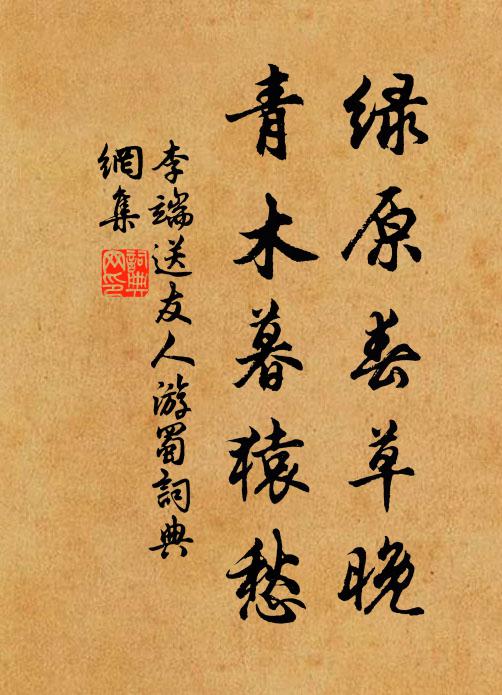 绿原春草晚
青木暮猿愁
李端送友人游蜀詞典
網集
詞典
网印